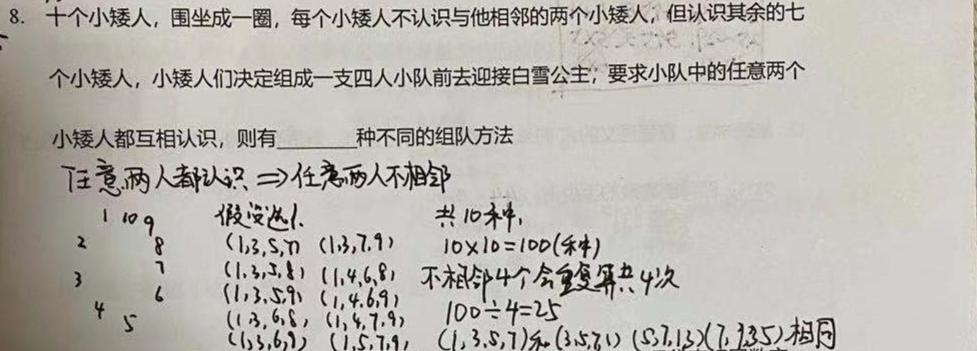 8. 十个小矮人，围坐成一圈，每个小矮人不认识与他相邻的两个小矮人，但认识其余的七
个小矮人，小矮人们决定组成一支四人小队前去迎接白雪公主，要求小队中的任意两个
小矮人都互相认识，则有______种不同的组队方法
任意两人都认识 ⇒ 任意两人不相邻
1 10 9 假设选1. 共10种,
2 8 (1,3,5,7) (1,3,7,9) 10×10=100(种)
3 7 (1,3,5,8) (1,4,6,8) 不相邻4个会重复算共4次
4 6 (1,3,5,9) (1,4,6,9) 100÷4=25
5 (1,3,6,8) (1,4,7,9)
(1,3,6,9) (1,5,7,9) (1,3,5,7)和(3,5,7,1) (5,7,1,3)(7,1,3,5)相同